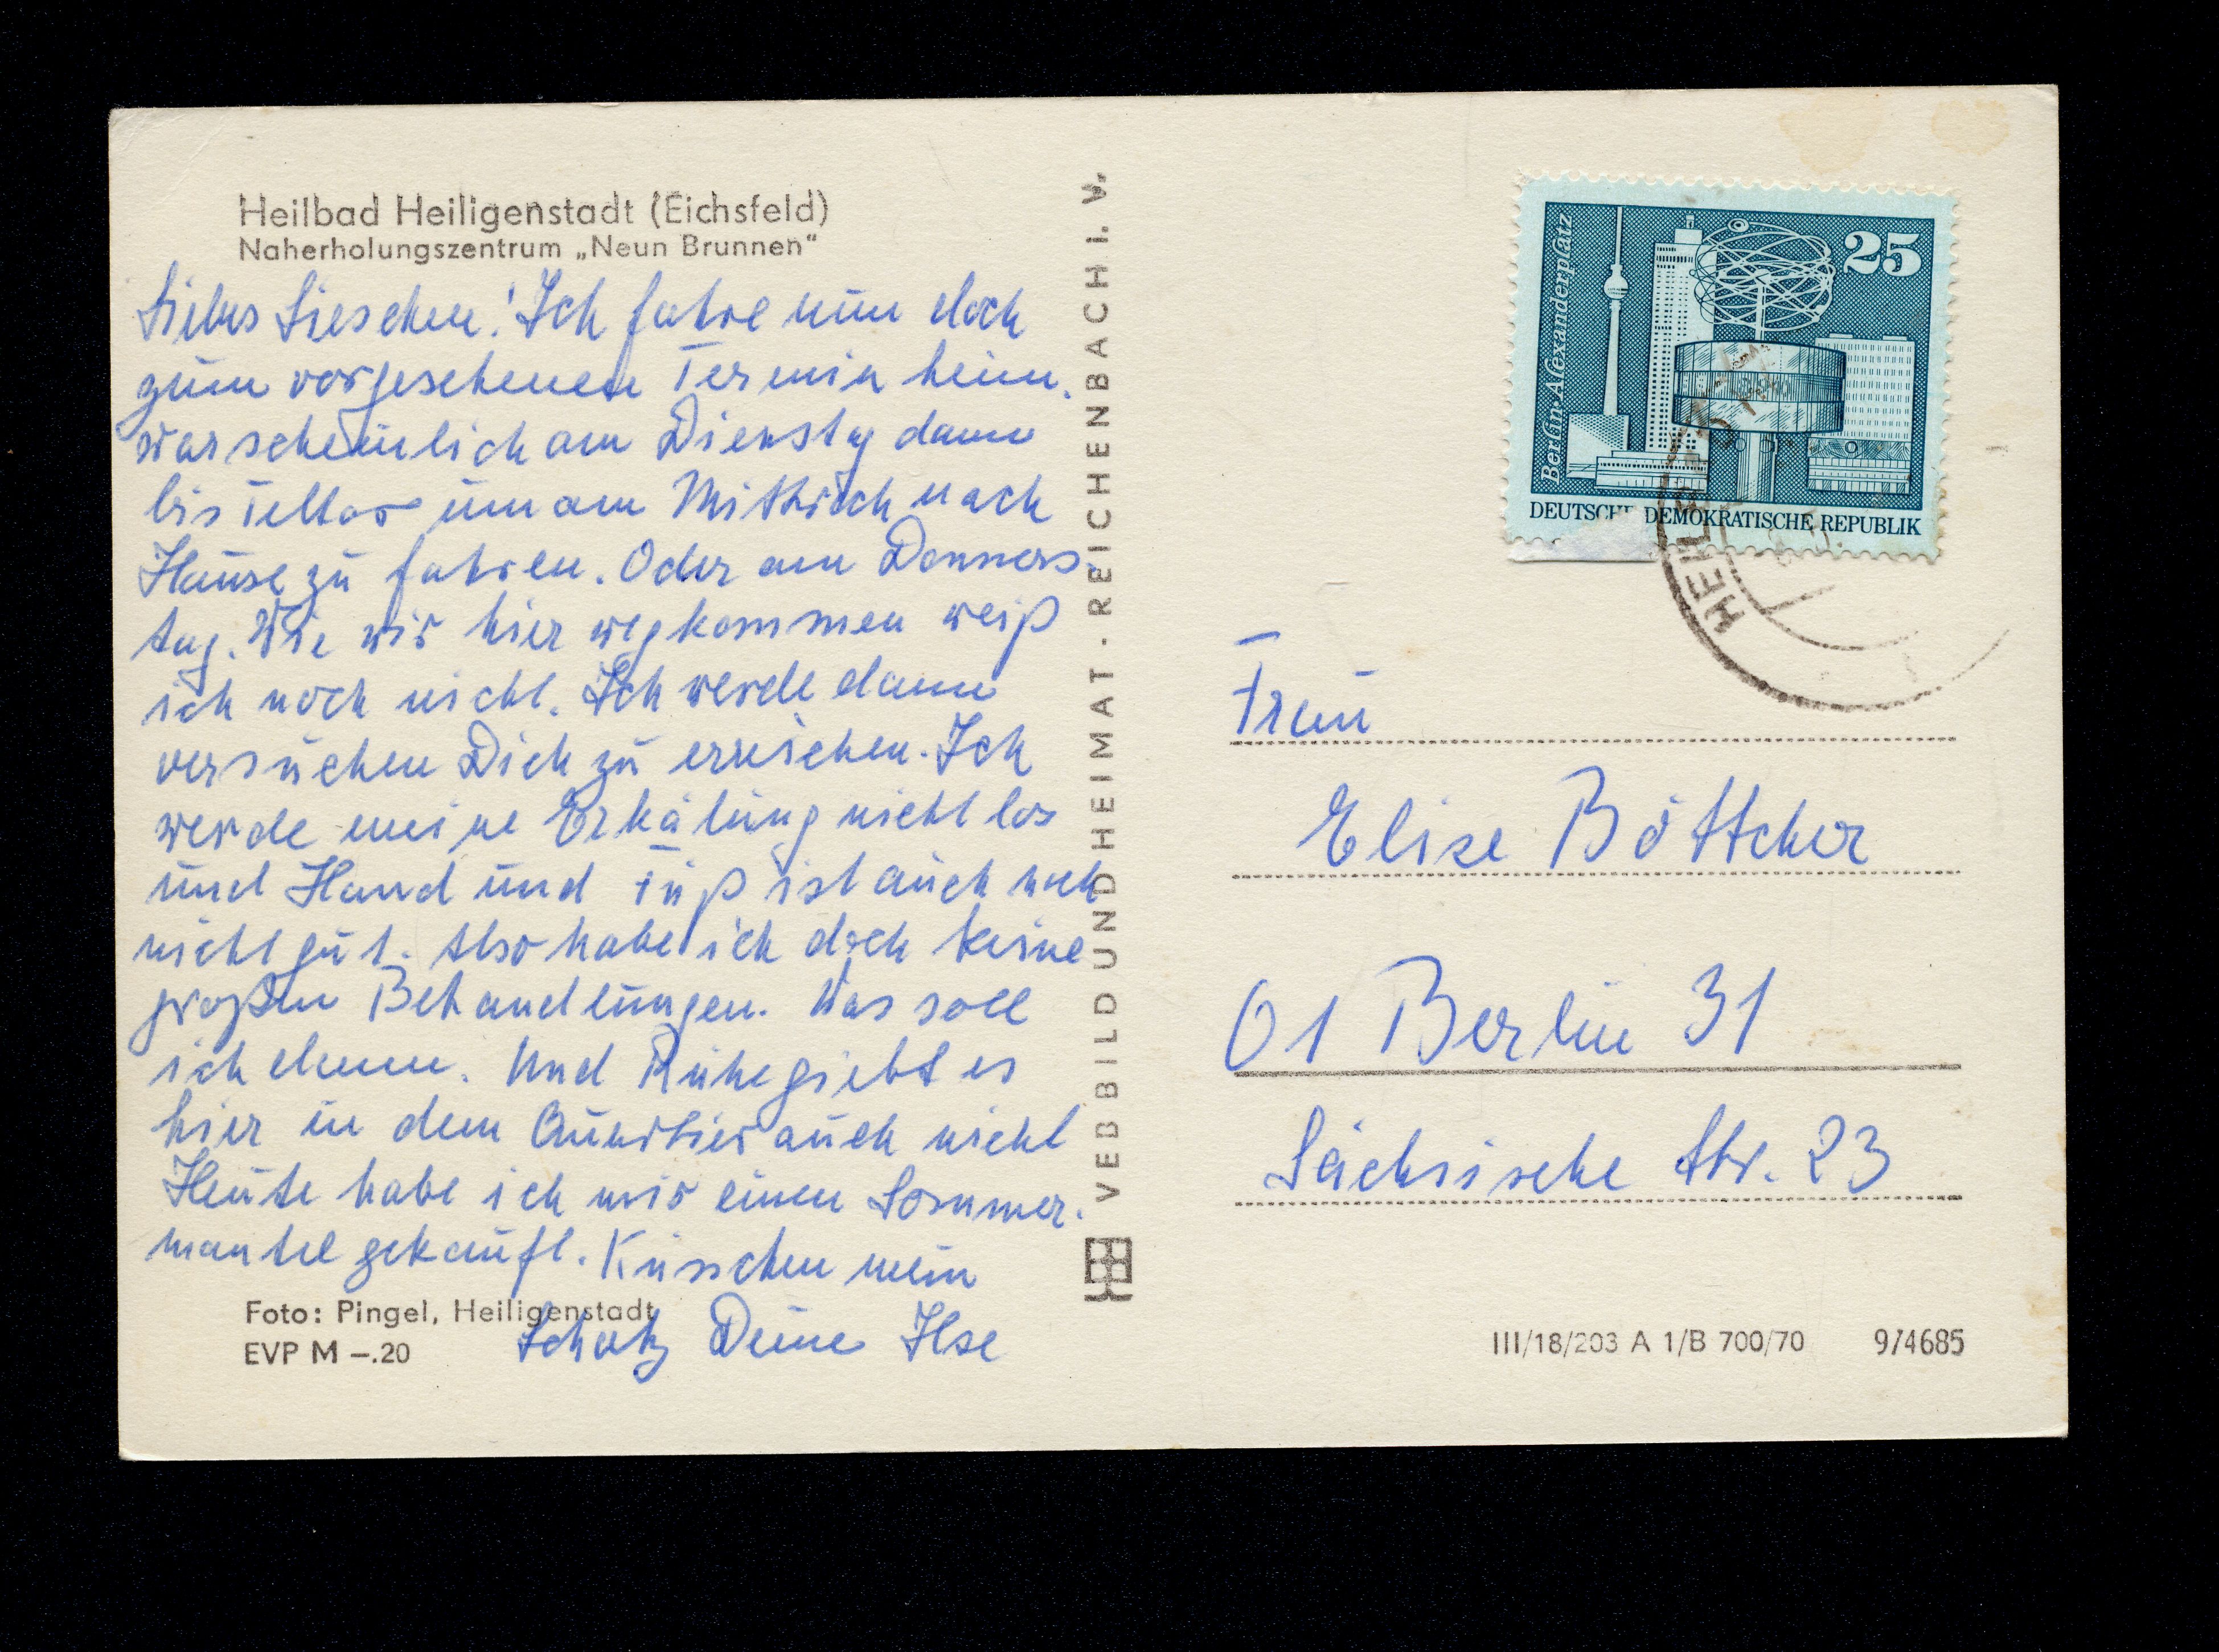 Heilbad Heiligenstadt (Eichsfeld)
Naherholungszentrum „Neun Brunnen“
Liebes Lieschen! Ich fahre nun doch
zum vorgesehenen Termin heim.
warscheinlich am Dienstag dann
bis Teltow um am Mittwoch nach
Hause zu fahren. Oder am Donners-
tag. Wie wir hier wegkommen weiß
ich noch nicht. Ich werde dann
versuchen Dich zu erreichen. Ich
werde meine Erkälung nicht los
und Hand und Fuß ist auch noch
nicht gut. Also habe ich doch keine
großen Behandlungen. Was soll
ich denn. Und Ruhe giebt es
hier in dem Quartier auch nicht
Heute habe ich mir einen Sommer-
mantel gekauft. Küsschen mein
Schatz Deine Ilse
Foto: Pingel, Heiligenstadt
EVP M –.20
VEB BILD UND HEIMAT · REICHENBACH I. V.
Berlin-Alexanderplatz
25
DEUTSCHE DEMOKRATISCHE REPUBLIK
HEIL
Frau
Elise Böttcher
01 Berlin 31
Sächsische Str. 23
III/18/203 A 1/B 700/70 9/4685